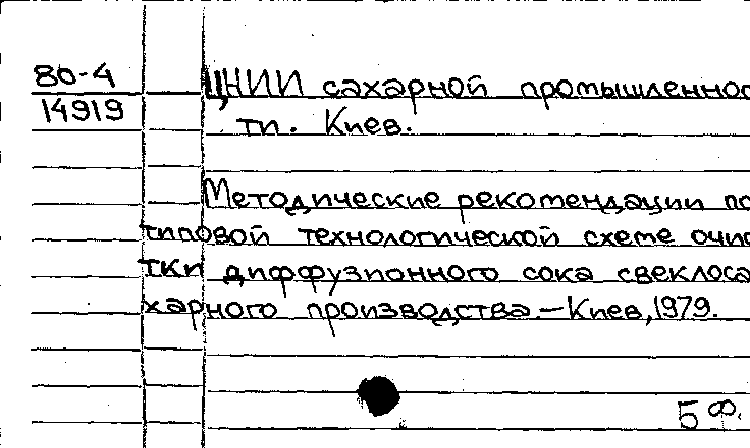 80-4
14919
ЦНИИ сахарной промышленнос
ти. Киев.
Методические рекомендации по
типовой технологической схеме очис
тки диффузионного сока свеклоса
харного производства.—Киев,1979.
5 ф.